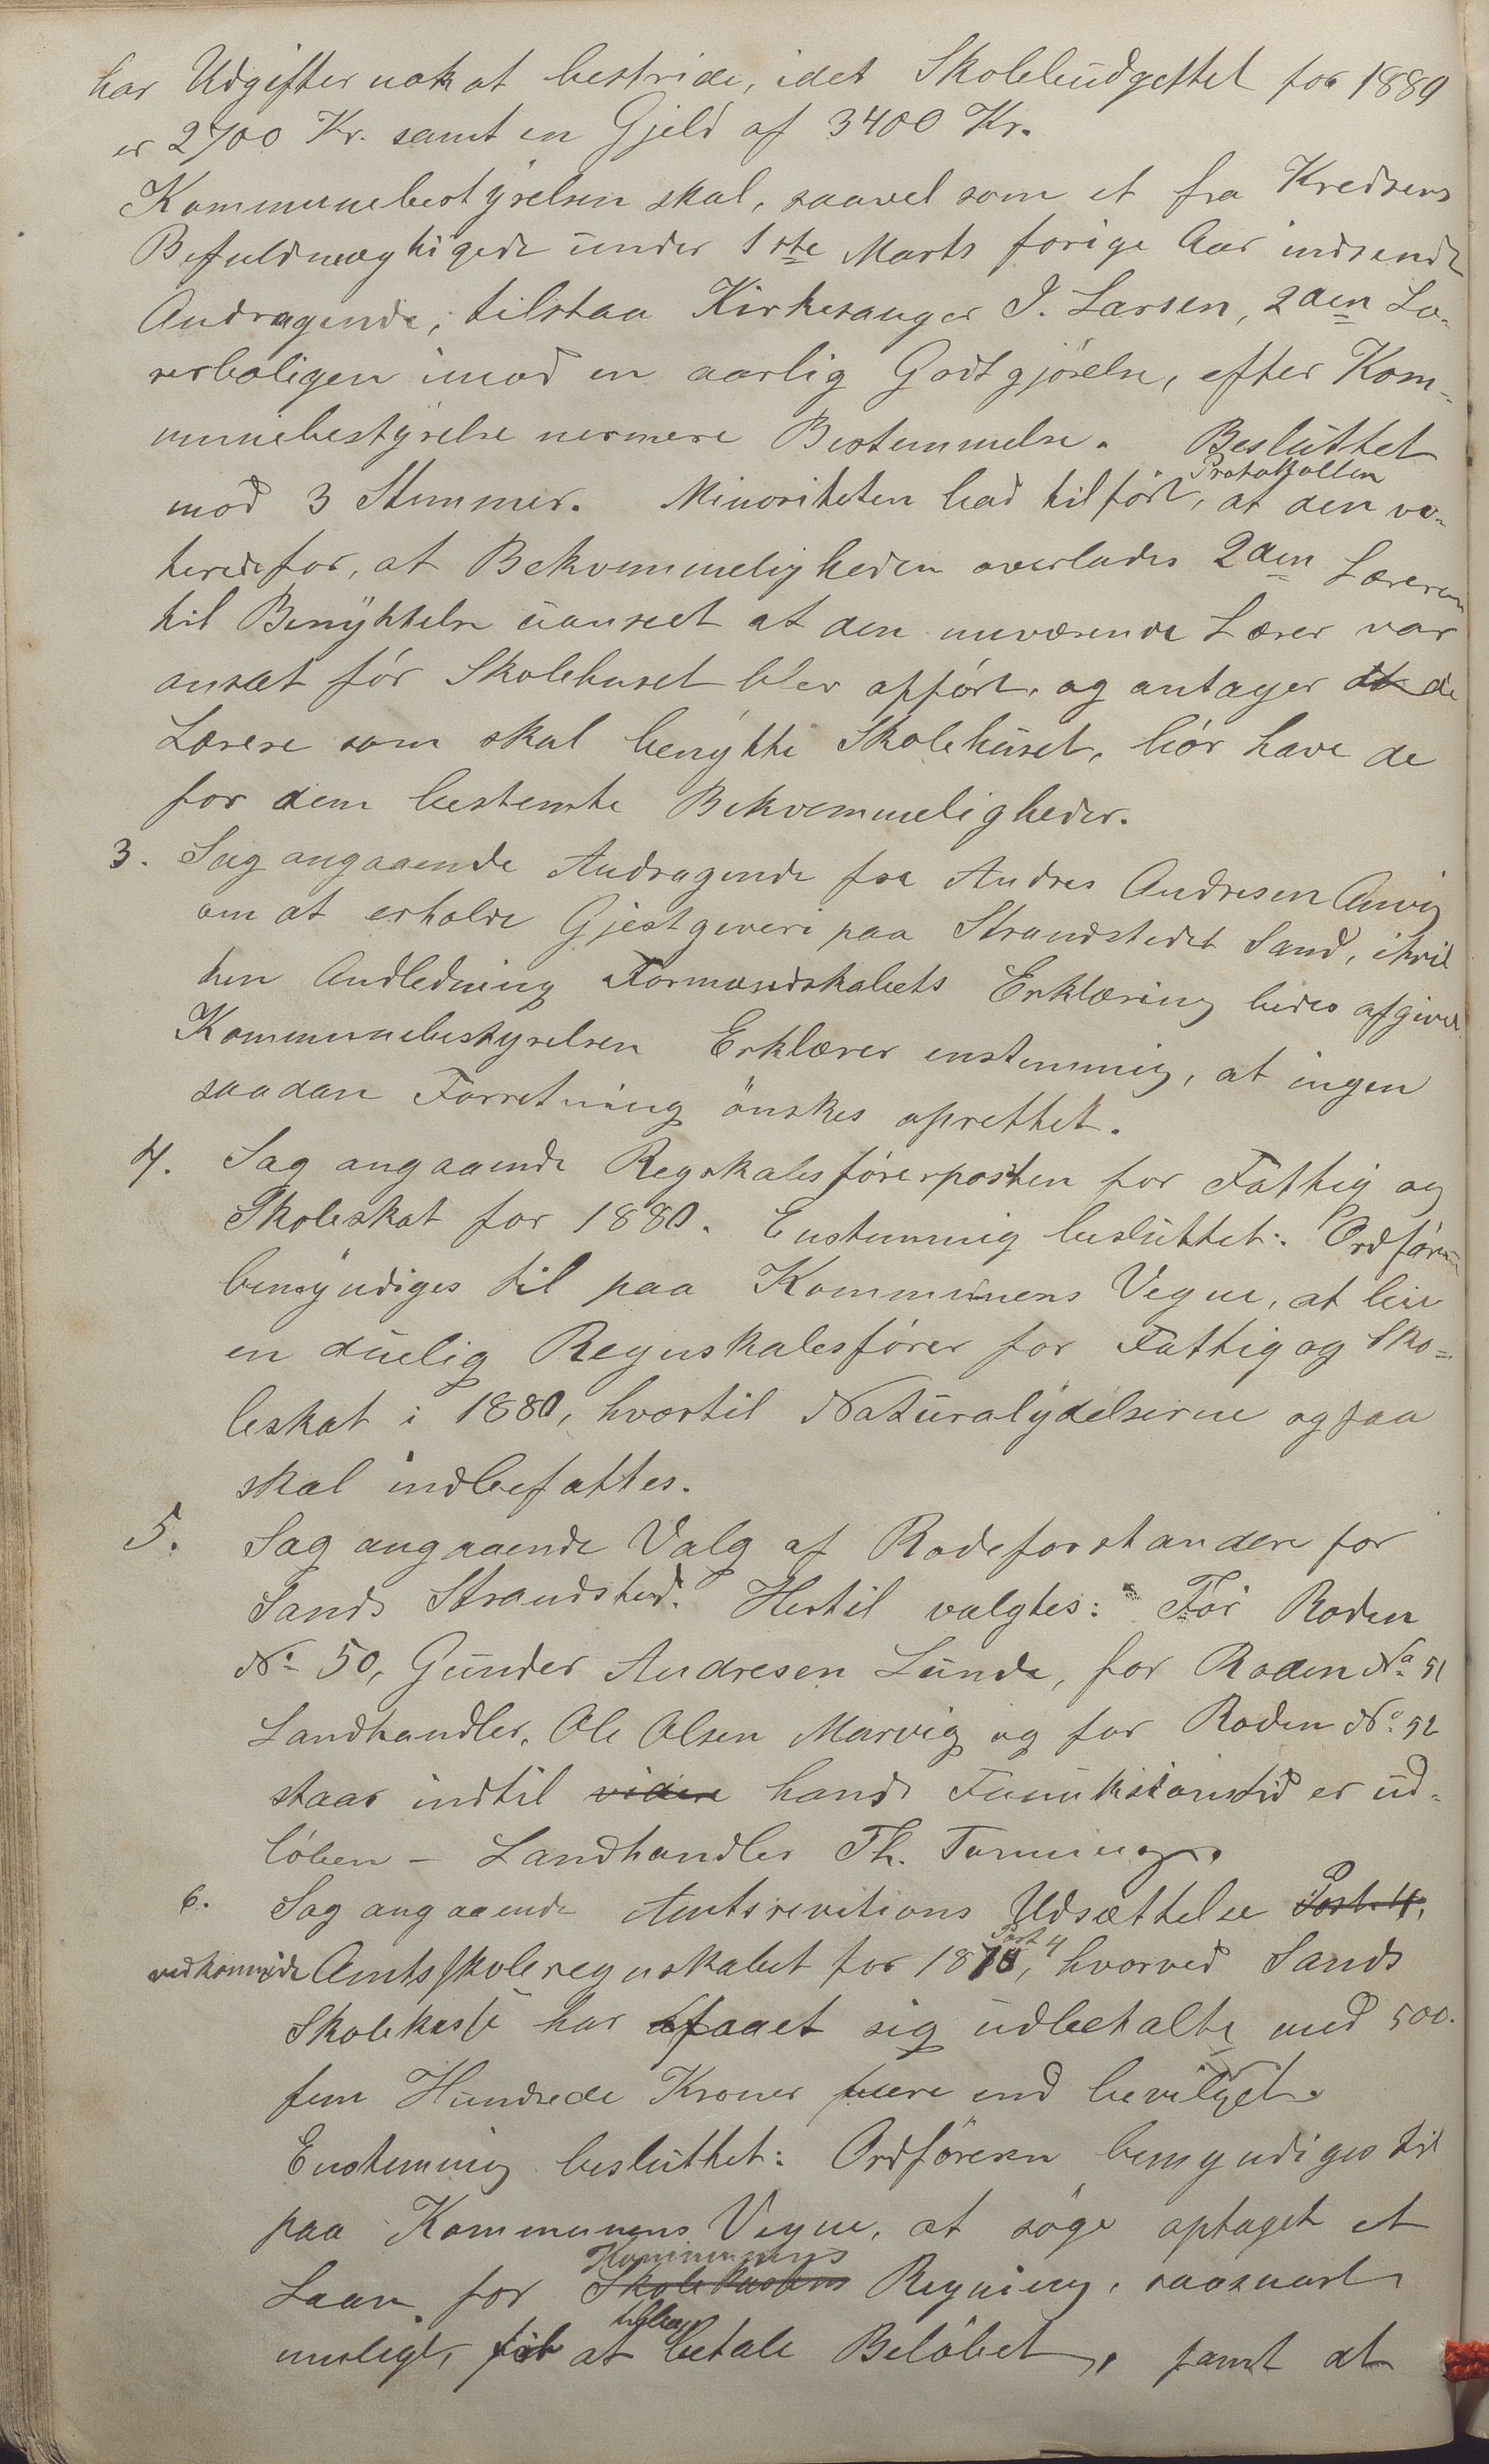 har Udgifter nok at bestride, idet Skolebudgettet for 1880
er 2700 Kr. samt en Gjeld af 3400 Kr.
Kommunebestyrelsen skal, saavel som et fra Kredsens
Befuldmægtigede under 1ste Marts forige Aar indsendt
Andragende, tilstaa Kirkesanger J. Larsen, 2den Læ-
rerboligen imod en aarlig Godtgjörelse, efter Kom-
munebestyrelse nermere Bestemmelse. Besluttet
mod 3 Stemmer. Minoriteten bad tilfört Protokollen, at den vo-
terede for, at Bekvemmeligheden overlades 2den Læreren
til Benyttelse uanseet at den nuværende Lærer var
ansat för Skolehuset blev opfört, og antager at de
Lærere som skal benytte Skolehuset, bör have de
for dem bestemte Bekvemmeligheder.
3. Sag angaaende Andragende fra Andres Andresen
om at erholde Gjestgiveri paa Strandstedet Sand, i hvil
ken Andledning Formandskabets Erklæring bedes afgivet.
Kommunebestyrelsen Erklærer enstemmig, at ingen
saadan Forretning önskes oprettet.
4. Sag angaaende Regskabsförerposten for Fattig og
Skoleskat for 1880. Enstemmig besluttet: Ordföreren
bemyndiges til paa Kommunens Vegne, at leie
en duelig Regnskabsförer for Fattig og Sko-
leskat i 1880, hvortil Naturalydelserne ogsaa
skal indbefattes.
5. Sag angaaende Valg af Rodeforstandere for
Sands Strandsted. Hertil valgtes: For Roden
No 50, Gunder Andresen Lunde, for Roden No 51
Landhandler, Ole Olsen Marvig og for Roden No 52
staar indtil videre hans Funnktionstid er ud-
löben – Landhandler Th.
6. Sag angaaende Amtsrevitions Udsættelse Post 4,
vedkommende Amtsskoleregnskabet for 1878, Post 4 hvorved Sands
Skolekasse har faaet sig udbetalte med 500.
fem Hundrede Kroner mere end bevilget.
Enstemmig besluttet: Ordföreren bemyndiges til
paa Kommunens Vegne, at söge optaget et
Laan for Skolekassens Kommunens Regning, saasnart
muligt, for at tilbage betale Belöbet, samt at